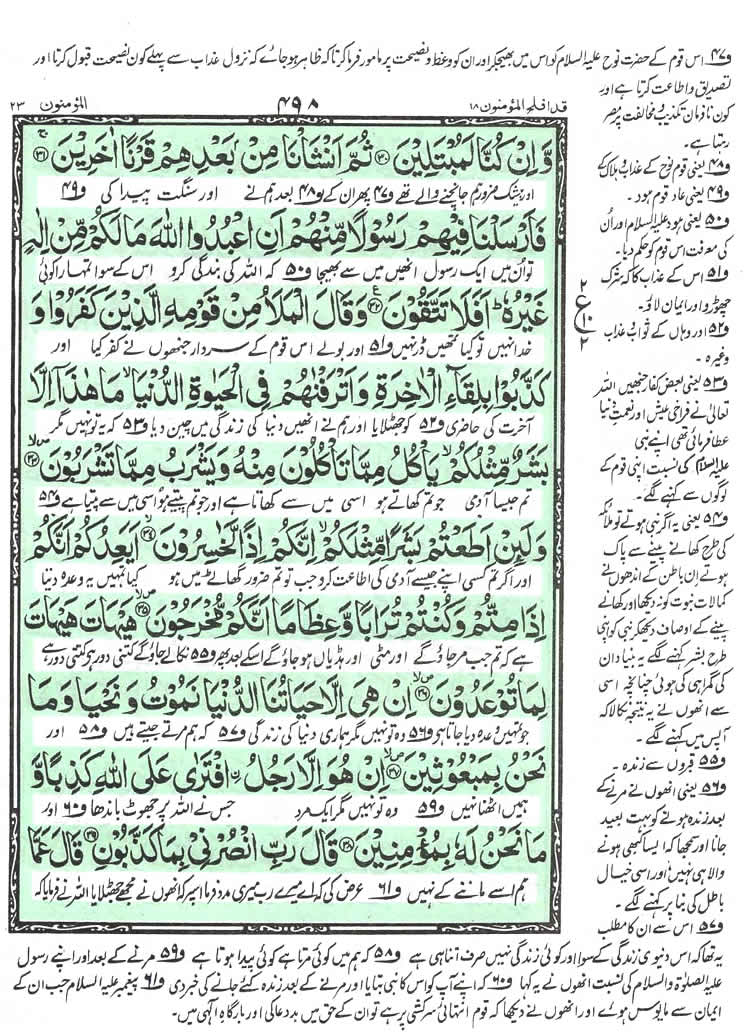 و۴۷ اس قوم کے حضرت نوح علیہ السلام کو اس میں بھیجکر اور ان کو وعظ و نصیحت پر مامور فرما کرتا کہ ظاہر ہوجائے کہ نزول عذاب سے پہلے کون نصیحت قبول کرتا اور
تصدیق و اطاعت کرتا ہے اور
کون نافرمان تکذیب و مخالفت پر مصر
رہتا ہے۔
و۴۸ یعنی قوم نوح کے عذاب و ہلاک کے
و۴۹ یعنی عاد قوم ہود۔
و۵۰ یعنی ہود علیہ السلام اور اُن
کی معرفت اس قوم کو حکم دیا۔
و۵۱ اس کے عذاب کا کہ شرک
چھوڑو اور ایمان لاؤ۔
و۵۲ اور وہاں کے ثواب و عذاب
وغیرہ۔
و۵۳ یعنی بعض کفار جنھیں اللہ
تعالیٰ نے فراخی عیش اور نعمت دنیا
عطا فرمائی تھی اپنے ہی
علیہ السلام کی نسبت اپنی قوم کے
لوگوں سے کہنے لگے۔
و۵۴ یعنی یہ اگر نبی ہوتے تو ملائکہ
کی طرح کھانے پینے سے پاک
ہوتے اِن باطن کے اندھوں نے
کمالات نبوت کو نہ دیکھا اور کھانے
پینے کے اوصاف دیکھکر نبی کو اپنی
طرح بشر کہنے لگے یہ بنیاد ان
کی گمراہی کی ہوئی چنانچہ اسی
سے انھوں نے یہ نتیجہ نکالا کہ
آپس میں کہنے لگے۔
و۵۵ قبروں سے زندہ۔
و۵۶ یعنی انھوں نے مرنے کے
بعد زندہ ہونے کو بہت بعید
جانا اور سمجھا کہ ایسا کبھی ہونے
والا ہی نہیں اور اسی خیال
باطل کی بنا پر کہنے لگے۔
و۵۷ اس سے ان کا مطلب
قد افلح المؤمنون ۱۸
۴۹۸
المؤمنون ۲۳
وَّاِنْ كُنَّا لَمُبْتَلِيْنَ ۳۰ ثُمَّ اَنْشَاْنَا مِنْۢ بَعْدِهِمْ قَرْنًا اٰخَرِيْنَ ۳۱
اور بیشک ضرور ہم جانچنے والے تھے و۴۷ پھر ان کے و۴۸ بعد ہم نے اور سنگت پیدا کی و۴۹
فَاَرْسَلْنَا فِيْهِمْ رَسُوْلًا مِّنْهُمْ اَنِ اعْبُدُوا اللّٰهَ مَا لَكُمْ مِّنْ اِلٰهٍ
تو اُن میں ایک رسول انھیں میں سے بھیجا و۵۰ کہ اللہ کی بندگی کرو اس کے سوا تمہارا کوئی
غَيْرُهٗ ؕ اَفَلَا تَتَّقُوْنَ ۳۲ وَقَالَ الْمَلَاُ مِنْ قَوْمِهِ الَّذِيْنَ كَفَرُوْا وَ
خدا نہیں تو کیا تمھیں ڈر نہیں و۵۱ اور بولے اس قوم کے سردار جنھوں نے کفر کیا اور
كَذَّبُوْا بِلِقَآءِ الْاٰخِرَةِ وَاَتْرَفْنٰهُمْ فِى الْحَيٰوةِ الدُّنْيَا ۙ مَا هٰذَاۤ اِلَّا
آخرت کی حاضری و۵۲ کو جھٹلایا اور ہم نے انھیں دنیا کی زندگی میں چین دیا و۵۳ کہ یہ تو نہیں مگر
بَشَرٌ مِّثْلُكُمْ ۙ يَاْكُلُ مِمَّا تَاْكُلُوْنَ مِنْهُ وَيَشْرَبُ مِمَّا تَشْرَبُوْنَ ۳۳
تم جیسا آدمی جو تم کھاتے ہو اسی میں سے کھاتا ہے اور جو تم پیتے ہو اسی میں سے پیتا ہے و۵۴
وَلَئِنْ اَطَعْتُمْ بَشَرًا مِّثْلَكُمْ ۙ اِنَّكُمْ اِذًا لَّخٰسِرُوْنَ ۳۴ اَيَعِدُكُمْ اَنَّكُمْ
اور اگر تم کسی اپنے جیسے آدمی کی اطاعت کرو جب تو تم ضرور گھاٹے میں ہو کیا تمہیں یہ وعدہ دیتا
اِذَا مِتُّمْ وَكُنْتُمْ تُرَابًا وَّعِظَامًا اَنَّكُمْ مُّخْرَجُوْنَ ۳۵ هَيْهَاتَ هَيْهَاتَ
ہے کہ تم جب مرجاؤ گے اور مٹی اور ہڈیاں ہو جاؤ گے اسکے بعد پھر و۵۵ نکالے جاؤ گے کتنی دور ہے کتنی دور ہے
لِمَا تُوْعَدُوْنَ ۳۶ اِنْ هِىَ اِلَّا حَيَاتُنَا الدُّنْيَا نَمُوْتُ وَنَحْيَا وَمَا
جو تمہیں وعدہ دیا جاتا ہو و۵۶ وہ تو نہیں مگر ہماری دنیا کی زندگی و۵۷ کہ ہم مرتے جیتے ہیں و۵۸ اور
نَحْنُ بِمَبْعُوْثِيْنَ ۳۷ اِنْ هُوَ اِلَّا رَجُلُ ِ۟افْتَرٰى عَلَى اللّٰهِ كَذِبًا وَّ
ہمیں اٹھنا نہیں و۵۹ وہ تو نہیں مگر ایک مرد جس نے اللہ پر جھوٹ باندھا و۶۰ اور
مَا نَحْنُ لَهٗ بِمُؤْمِنِيْنَ ۳۸ قَالَ رَبِّ انْصُرْنِىْ بِمَا كَذَّبُوْنِ ۳۹ قَالَ عَمَّا
ہم اسے ماننے کے نہیں و۶۱ عرض کی کہ اے میرے رب میری مدد فرما اسپر کہ انھوں نے مجھے جھٹلایا اللہ نے فرمایا کہ
۲
ع
۱۰
۲
یہ تھا کہ اس دنیوی زندگی کے سوا اور کوئی زندگی نہیں صرف اتنا ہی ہے و۵۸ کہ ہم میں کوئی مرتا ہے کوئی پیدا ہوتا ہے و۵۹ مرنے کے بعد اور اپنے رسول
علیہ الصلوٰۃ والسلام کی نسبت انھوں نے یہ کہا و۶۰ کہ اپنے آپ کو اس کا نبی بتایا اور مرنے کے بعد زندہ کئے جانے کی خبر دی و۶۱ پیغمبر علیہ السلام جب ان کے
ایمان سے مایوس ہوئے اور انھوں نے دیکھا کہ قوم انتہائی سرکشی پر ہے تو ان کے حق میں بددعا کی اور بارگاہ الٰہی میں۔